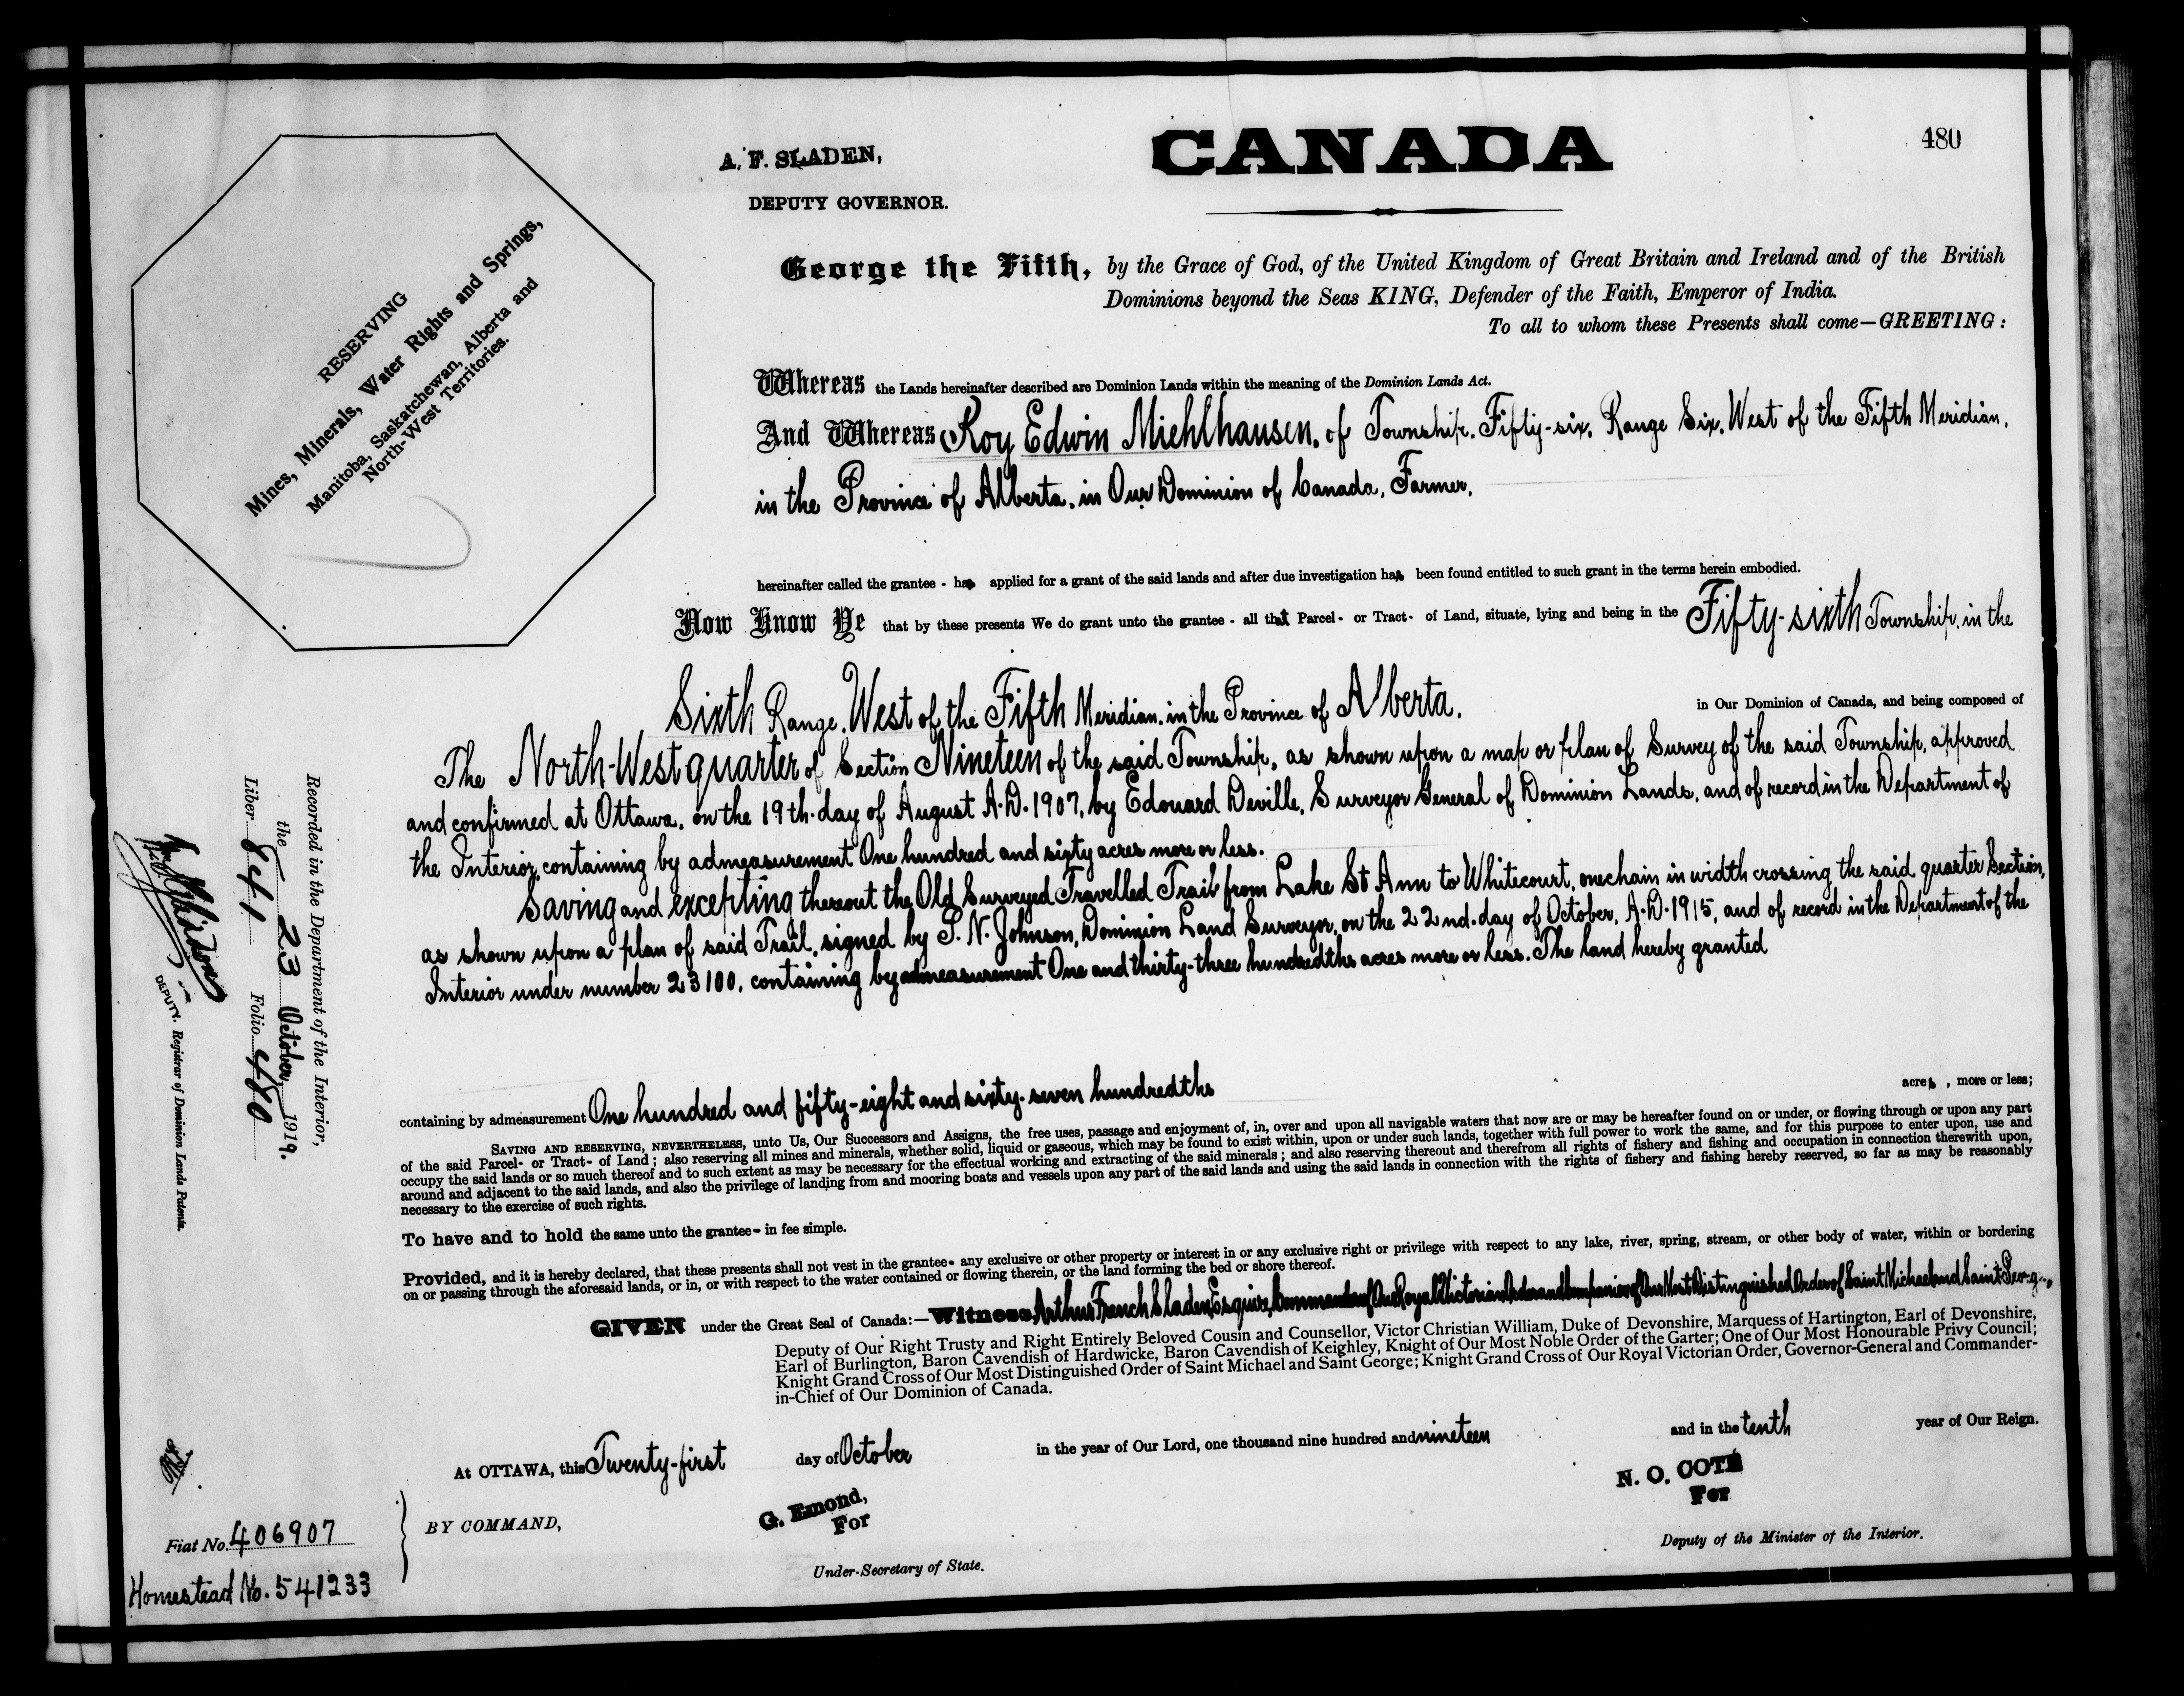 480
A. F. SLADEN,
DEPUTY GOVERNOR.
CANADA
RESERVING
Mines, Minerals, Water Rights and Springs,
Manitoba, Saskatchewan, Alberta and
North-West Territories.
George the Fifth, by the Grace of God, of the United Kingdom of Great Britain and Ireland and of the British
Dominions beyond the Seas KING, Defender of the Faith, Emperor of India.
To all to whom these Presents shall come—GREETING:
Whereas the Lands hereinafter described are Dominion Lands within the meaning of the Dominion Lands Act.
And Whereas Roy Edwin Miehlhausen, of Township Fifty-six, Range Six, West of the Fifth Meridian,
in the Province of Alberta, in Our Dominion of Canada, Farmer,
hereinafter called the grantee - has applied for a grant of the said lands and after due investigation has been found entitled to such grant in the terms herein embodied.
Now Know Ye that by these presents We do grant unto the grantee - all that Parcel - or Tract - of Land, situate, lying and being in the Fifty-sixth Township, in the
Sixth Range, West of the Fifth Meridian, in the Province of Alberta, in Our Dominion of Canada, and being composed of
The North-West quarter of Section Nineteen of the said Township, as shown upon a map or plan of Survey of the said Township, approved
and confirmed at Ottawa, on the 19th. day of August A.D. 1907, by Edouard Deville, Surveyor General of Dominion Lands, and of record in the Department of
the Interior, containing by admeasurement One hundred and sixty acres more or less.
Saving and excepting thereout the Old Surveyed Travelled Trail from Lake St Ann to Whitecourt, one chain in width crossing the said quarter Section,
as shown upon a plan of said Trail, signed by P. N. Johnson, Dominion Land Surveyor, on the 22nd. day of October, A.D. 1915, and of record in the Department of the
Interior under number 23100, containing by admeasurement One and thirty-three hundredths acres more or less. The land hereby granted
containing by admeasurement One hundred and fifty-eight and sixty-seven hundredths acres, more or less;
SAVING AND RESERVING, NEVERTHELESS, unto Us, Our Successors and Assigns, the free uses, passage and enjoyment of, in, over and upon all navigable waters that now are or may be hereafter found on or under, or flowing through or upon any part
of the said Parcel- or Tract- of Land; also reserving all mines and minerals, whether solid, liquid or gaseous, which may be found to exist within, upon or under such lands, together with full power to work the same, and for this purpose to enter upon, use and
occupy the said lands or so much thereof and to such extent as may be necessary for the effectual working and extracting of the said minerals; and also reserving thereout and therefrom all rights of fishery and fishing and occupation in connection therewith upon,
around and adjacent to the said lands, and also the privilege of landing from and mooring boats and vessels upon any part of the said lands and using the said lands in connection with the rights of fishery and fishing hereby reserved, so far as may be reasonably
necessary to the exercise of such rights.
To have and to hold the same unto the grantee- in fee simple.
Provided, and it is hereby declared, that these presents shall not vest in the grantee- any exclusive or other property or interest in or any exclusive right or privilege with respect to any lake, river, spring, stream, or other body of water, within or bordering
on or passing through the aforesaid lands, or in, or with respect to the water contained or flowing therein, or the land forming the bed or shore thereof.
GIVEN under the Great Seal of Canada:—Witness, Arthur French Sladen, Esquire, Commander of Our Royal Victorian Order and Companion of Our Most Distinguished Order of Saint Michael and Saint George,
Deputy of Our Right Trusty and Right Entirely Beloved Cousin and Counsellor, Victor Christian William, Duke of Devonshire, Marquess of Hartington, Earl of Devonshire,
Earl of Burlington, Baron Cavendish of Hardwicke, Baron Cavendish of Keighley, Knight of Our Most Noble Order of the Garter; One of Our Most Honourable Privy Council;
Knight Grand Cross of Our Most Distinguished Order of Saint Michael and Saint George; Knight Grand Cross of Our Royal Victorian Order, Governor-General and Commander-
in-Chief of Our Dominion of Canada.
At OTTAWA, this Twenty-first day of October in the year of Our Lord, one thousand nine hundred and nineteen and in the tenth year of Our Reign.
BY COMMAND,
G. Emond,
For
Under-Secretary of State.
N. O. COTÉ
For
Deputy of the Minister of the Interior.
Recorded in the Department of the Interior,
the 23 October, 1919,
Liber 841 Folio 480
DEPUTY. Registrar of Dominion Lands Patents.
Fiat No. 406907
Homestead No. 541233